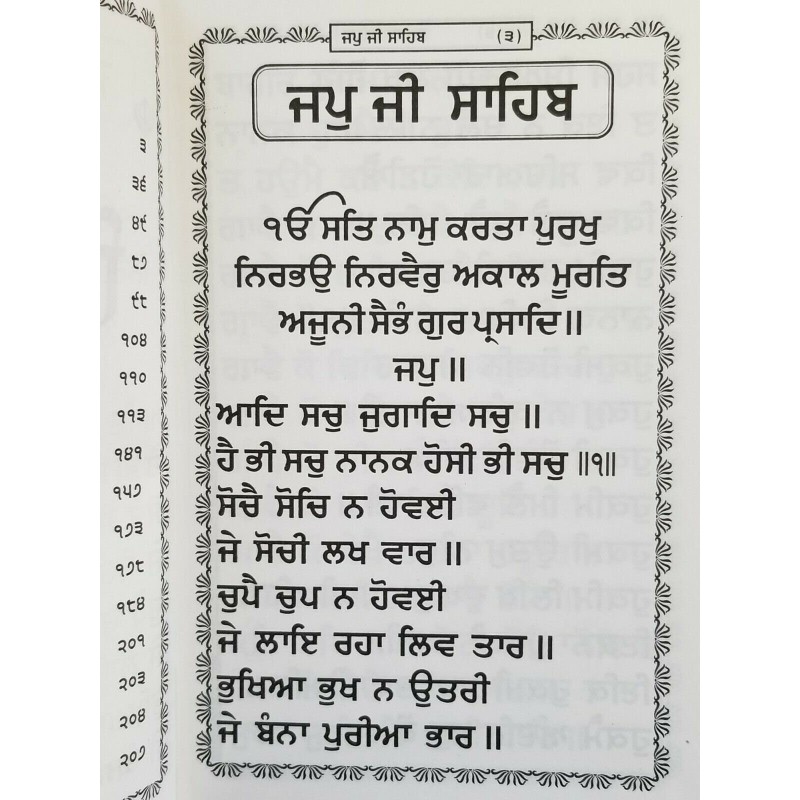 ੩
੩੬
੪੯
੮੭
੯੯
੧੦੪
੧੧੦
੧੧੩
੧੪੧
੧੫੭
੧੭੩
੧੭੮
੧੮੪
੨੦੧
੨੦੩
੨੦੪
੨੦੭
ਜਪੁ ਜੀ ਸਾਹਿਬ (੩)
ਜਪੁ ਜੀ ਸਾਹਿਬ
ੴ ਸਤਿ ਨਾਮੁ ਕਰਤਾ ਪੁਰਖੁ
ਨਿਰਭਉ ਨਿਰਵੈਰੁ ਅਕਾਲ ਮੂਰਤਿ
ਅਜੂਨੀ ਸੈਭੰ ਗੁਰ ਪ੍ਰਸਾਦਿ॥
ਜਪੁ ॥
ਆਦਿ ਸਚੁ ਜੁਗਾਦਿ ਸਚੁ ॥
ਹੈ ਭੀ ਸਚੁ ਨਾਨਕ ਹੋਸੀ ਭੀ ਸਚੁ ॥੧॥
ਸੋਚੈ ਸੋਚਿ ਨ ਹੋਵਈ
ਜੇ ਸੋਚੀ ਲਖ ਵਾਰ ॥
ਚੁਪੈ ਚੁਪ ਨ ਹੋਵਈ
ਜੇ ਲਾਇ ਰਹਾ ਲਿਵ ਤਾਰ ॥
ਭੁਖਿਆ ਭੁਖ ਨ ਉਤਰੀ
ਜੇ ਬੰਨਾ ਪੁਰੀਆ ਭਾਰ ॥